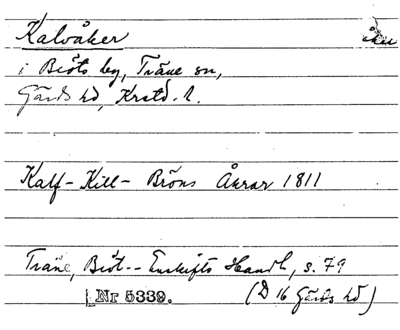 Kalvåker åker
i Biöts by, Träne sn,
Gärds hd, Krstd. l.
Kalf- Kill- Bröns Åkrar 1811
Träne, Biöt.-- Enskifts Handl, s. 79
Nr 5339. (D 16 Gärds hd)